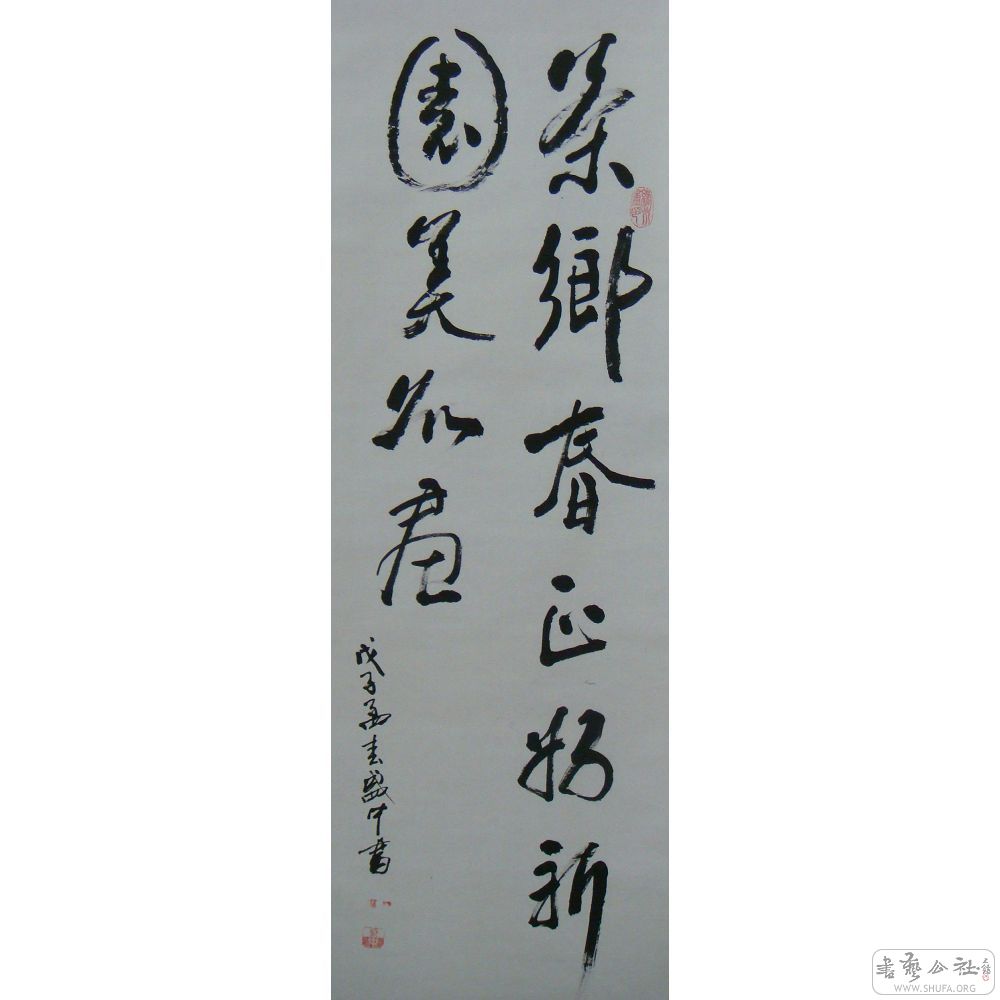 茶鄉春正物新
園美如畫
戊子孟春盛中書
書藝公社
WWW.SHUFA.ORG